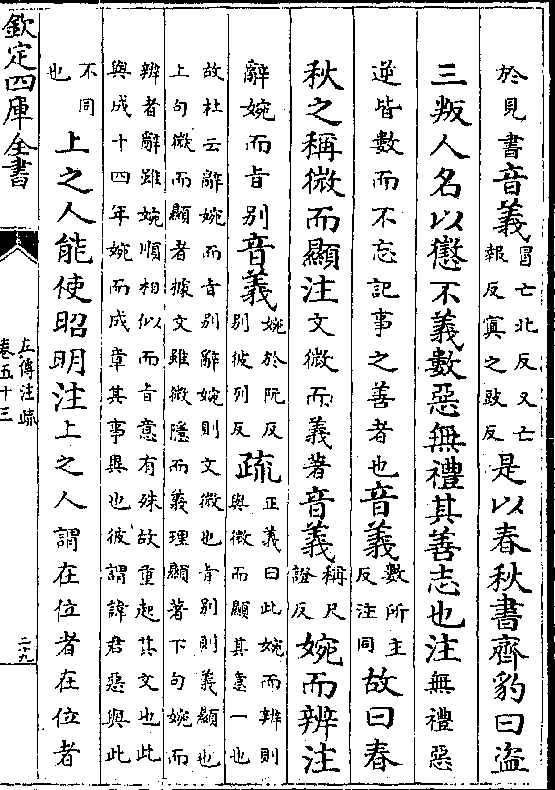 於見書音義冒亡北反又亡
報反寘之豉反是以春秋書齊豹曰盜
三叛人名以懲不義數惡無禮其善志也注無禮惡
逆皆數而不忘記事之善者也音義數所主
反注同故曰春
秋之稱微而顯注文微而義著音義稱尺
證反婉而辨注
辭婉而旨别音義婉於阮反
别彼列反疏正義曰此婉而辨則
與微而顯其意一也
故杜云辭婉而旨别辭婉則文微也旨别則義顯也
上句微而顯者據文雖微隱而義理顯著下句婉而
辨者辭雖婉順相似而旨意有殊故重起其文也此
與成十四年婉而成章其事異也彼謂諱君惡與此
不同
也上之人能使昭明注上之人謂在位者在位者
欽定四庫全書
左傳注疏
卷五十三
二十九